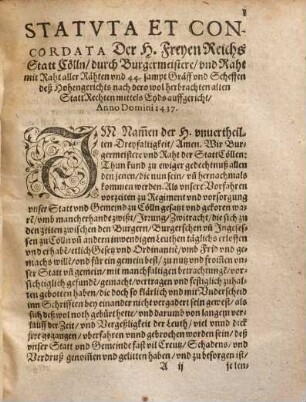 STATVTA ET CON-
CORDATA Der H. Freyen Reichs
Statt Cölln / durch Burgermeistere / vnd Raht
mit Raht aller Rähten vnd 44. sampt Gräff vnd Scheffen
deß Hohengerichts nach dero wol herbrachten alten
Statt Rechten mittels Eyds auffgericht /
Anno Domini 1437.
IM Namen der H. vnuertheil-
ten Dreyfaltigkeit / Amen. Wir Bur-
germeistere vnd Raht der Statt Cöllen:
Thun kund zu ewiger gedechtnuß allen
den jenen / die nun sein / vñ hernachmals
kommen werden. Als vnsere Vorfahren
vorzeiten zu Regiment vnd vorsorgung
vnser Statt vnd Gemeind zu Cölln gesatzt vnd gekoren wa-
rẽ / vmb mancherhand zwist / Irrung / Zwitracht / die sich zu
den zeiten zwischen den Burgern / Burgerschen vñ Ingesesse-
sen zu Cölln vñ andern inwendigen Leuthen täglichs erleffen
vnd erhabẽ / etlich Gesetz vnd Ordinantiẽ / vmb Frid vnd ge-
machs will / vnd für ein gemein best / zu nutz vnd frommen vn-
ser Statt vñ gemein / mit manchfältigen betrachtung / vor-
sichtiglich gefundẽ / gemacht / vertragen vnd festiglich zuhal-
ten gebotten haben / die doch so klärlich vnd mit Vnderscheid
inn Schrifften bey einander nicht vergadert sein gewest / als
sich deß wol noth gebürt hette / vnd darumb von langem ver-
lauff der Zeit / vnd Vergeßligkeit der Leuth / viel vnnd dick
jrre gegangen / vberfahren vnnd gebrochen worden sein / deß
vnser Statt vnd Gemeinde fast vil Creut / Schadens / vnd
Verdruß genommen vnd gelitten haben / vnd zu besorgen ist /
A ij
jeten /